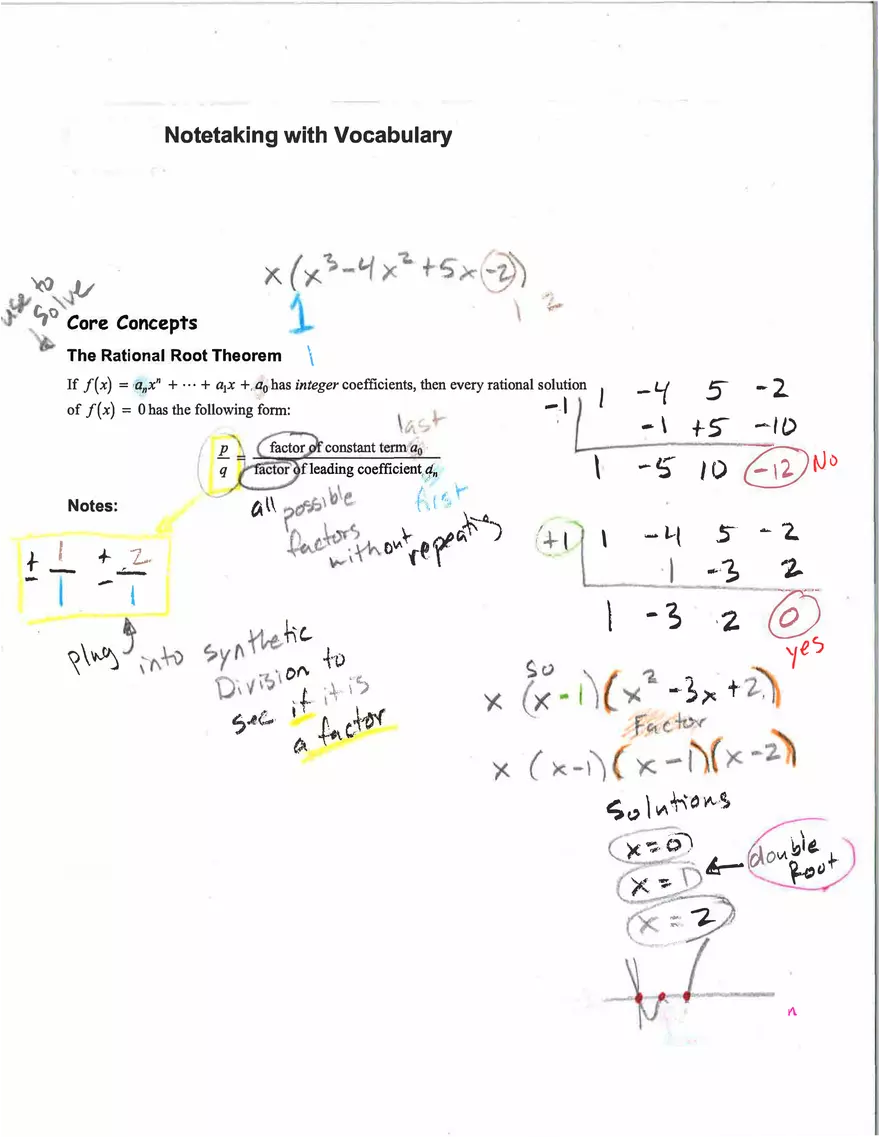 Notetaking with Vocabulary
x(x³-4x²+5x-2)
1 1 2
use to
solve
Core Concepts
The Rational Root Theorem 1
If f(x) = aₙxⁿ + ⋯ + a₁x + a₀ has integer coefficients, then every rational solution
of f(x) = 0 has the following form:
last
p/q = factor of constant term a₀ / factor of leading coefficient aₙ
first
Notes:
all possible
factors
without repeating
± 1/1 ± 2/1
plug into synthetic
Division to
see if it is
a factor
-1) 1 -4 5 -2
-1 +5 -10
1 -5 10 -12 No
+1) 1 -4 5 -2
1 -3 2
1 -3 2 0
yes
So
x (x-1)(x²-3x+2)
Factor
x (x-1)(x-1)(x-2)
Solutions
x=0
x=1
double
Root
x=2
n